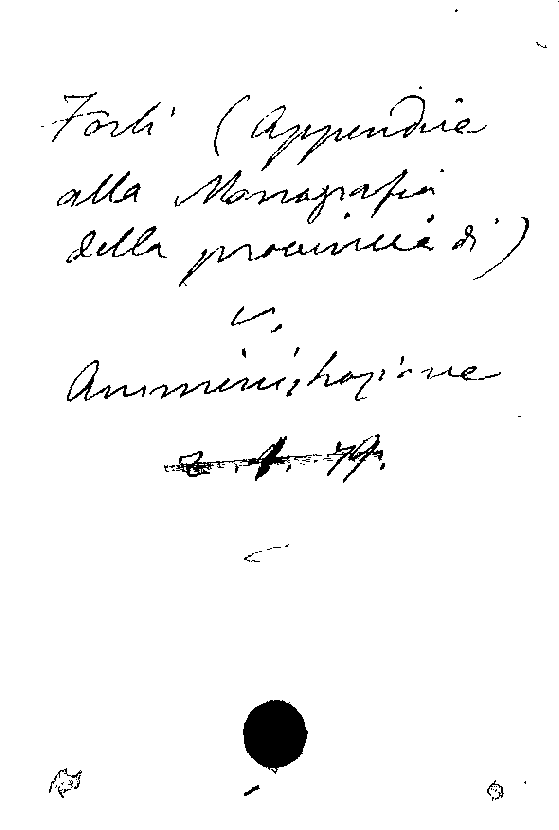 Forlì (Appendice
alla Monografia
della provincia di)
v.
Amministrazione